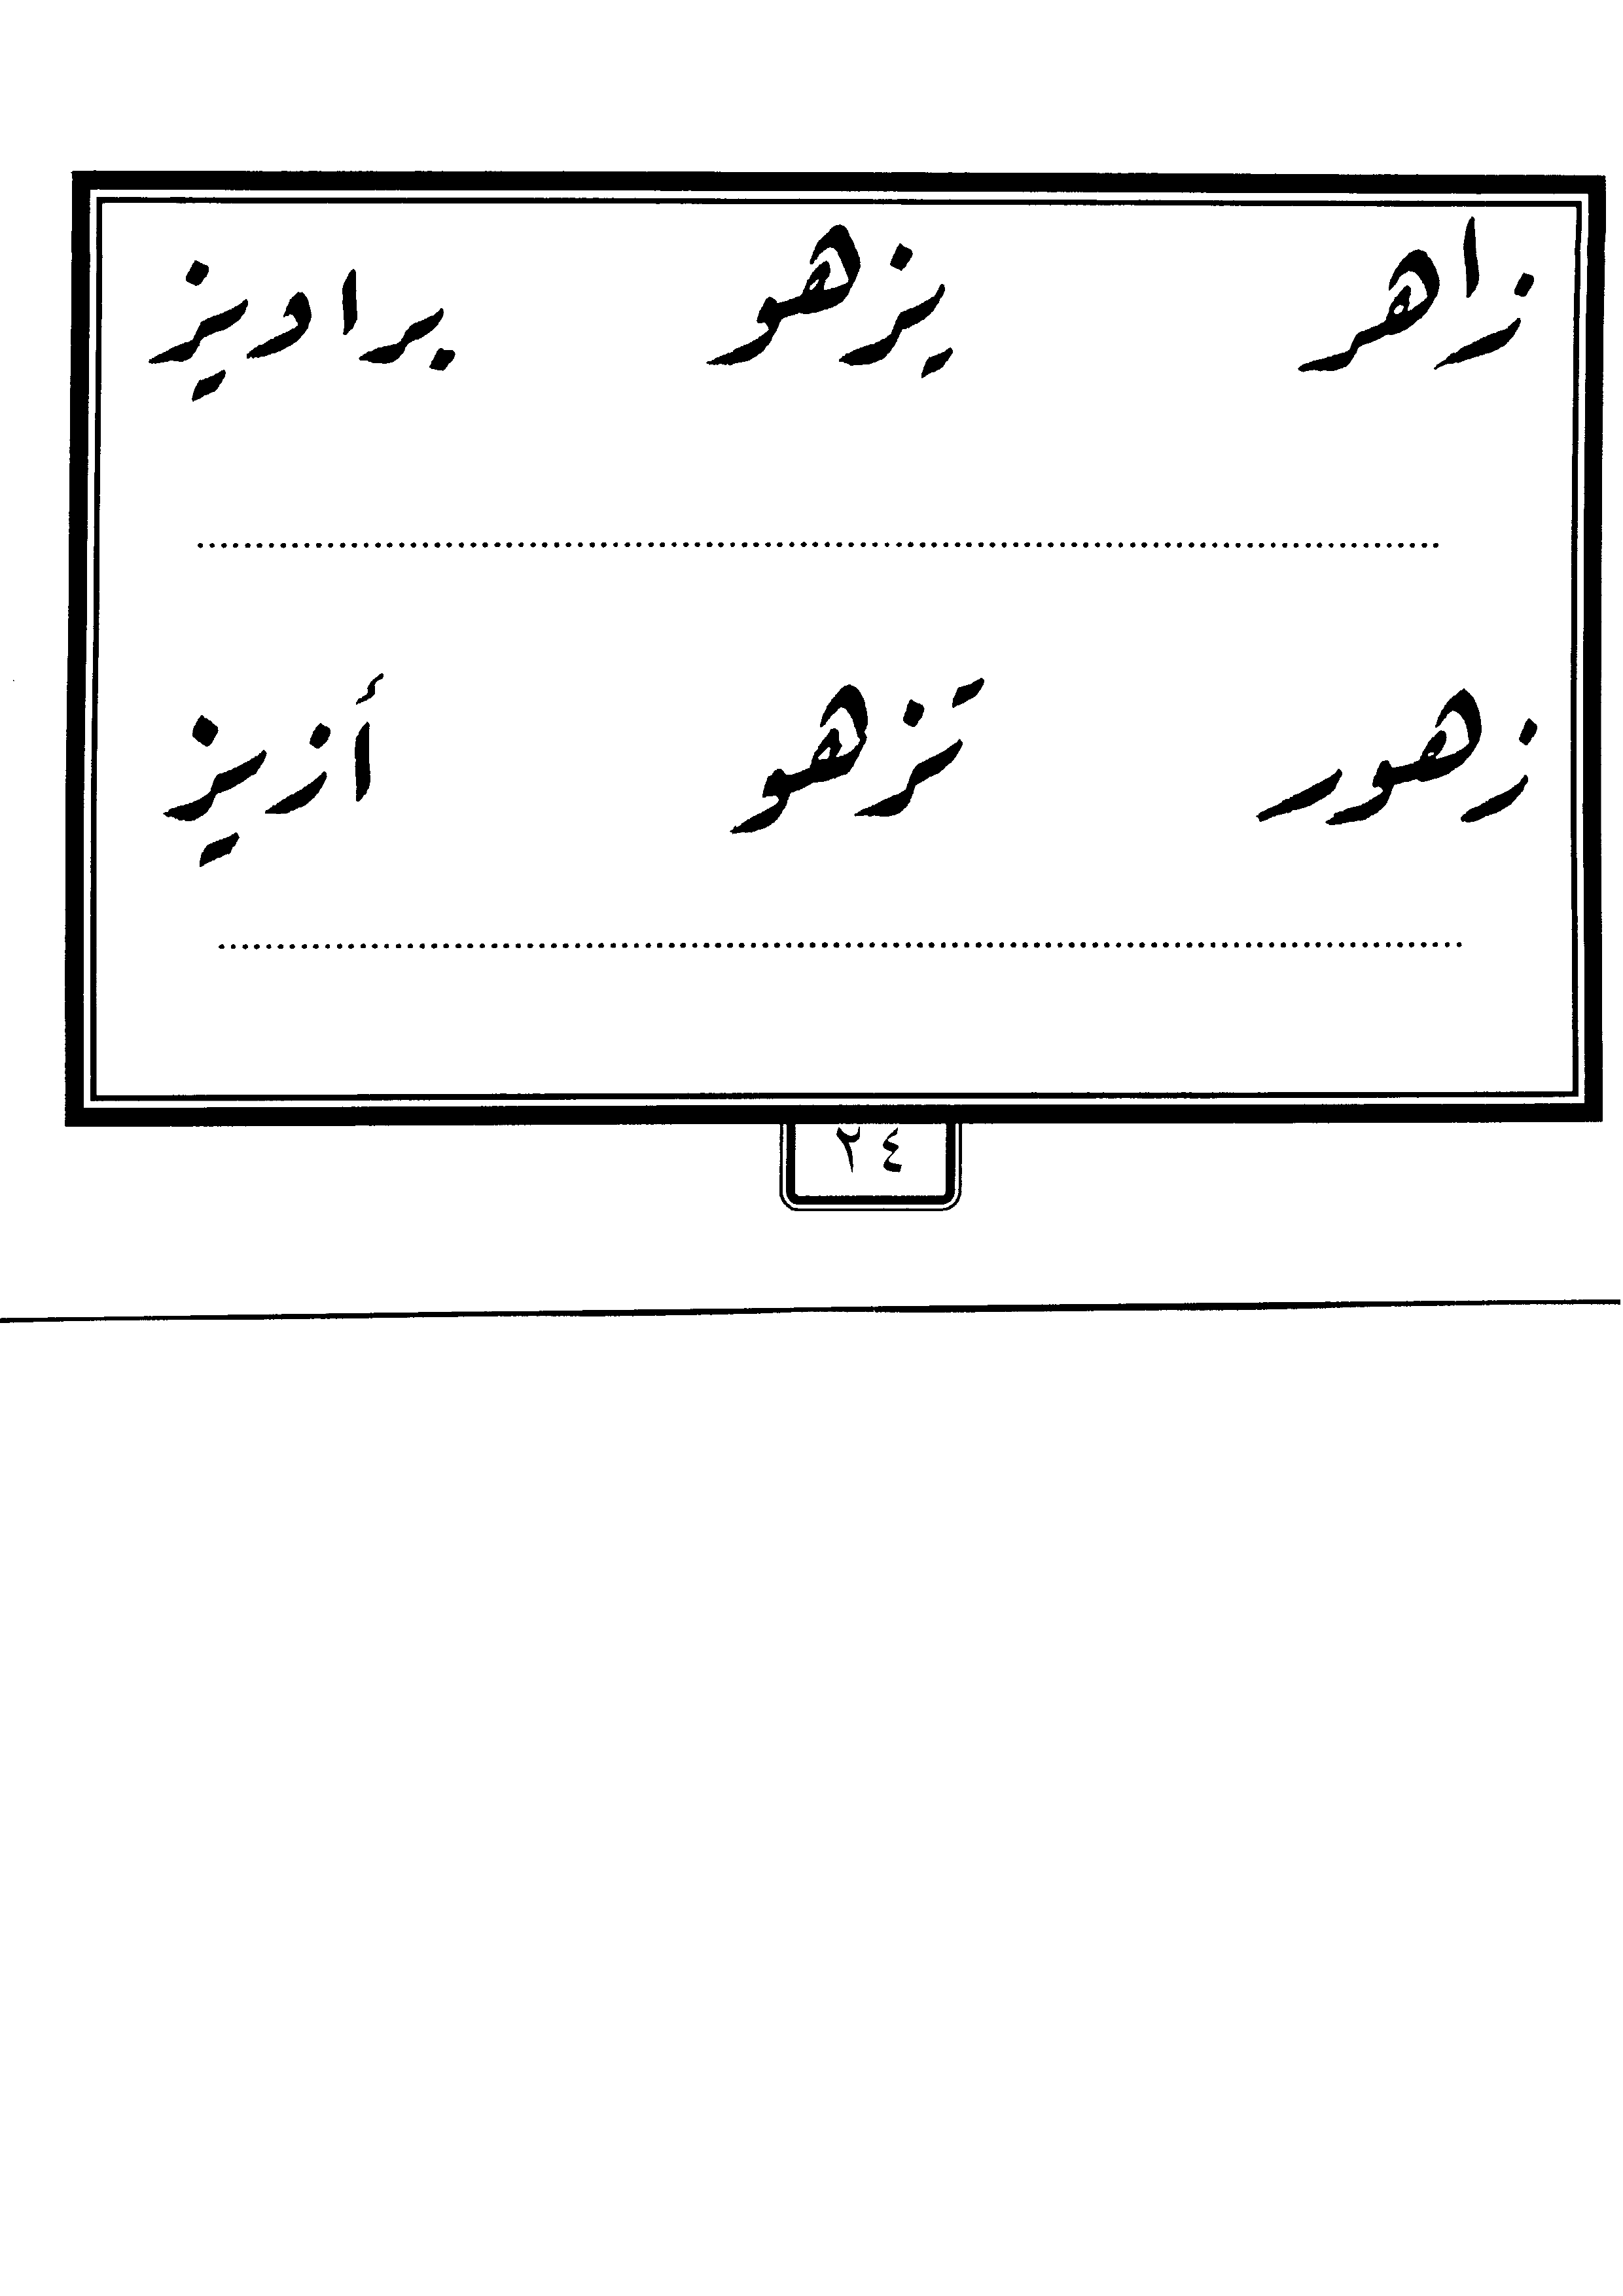 زاهر يزهو براديز
زهور تزهو أزيز
٢٤